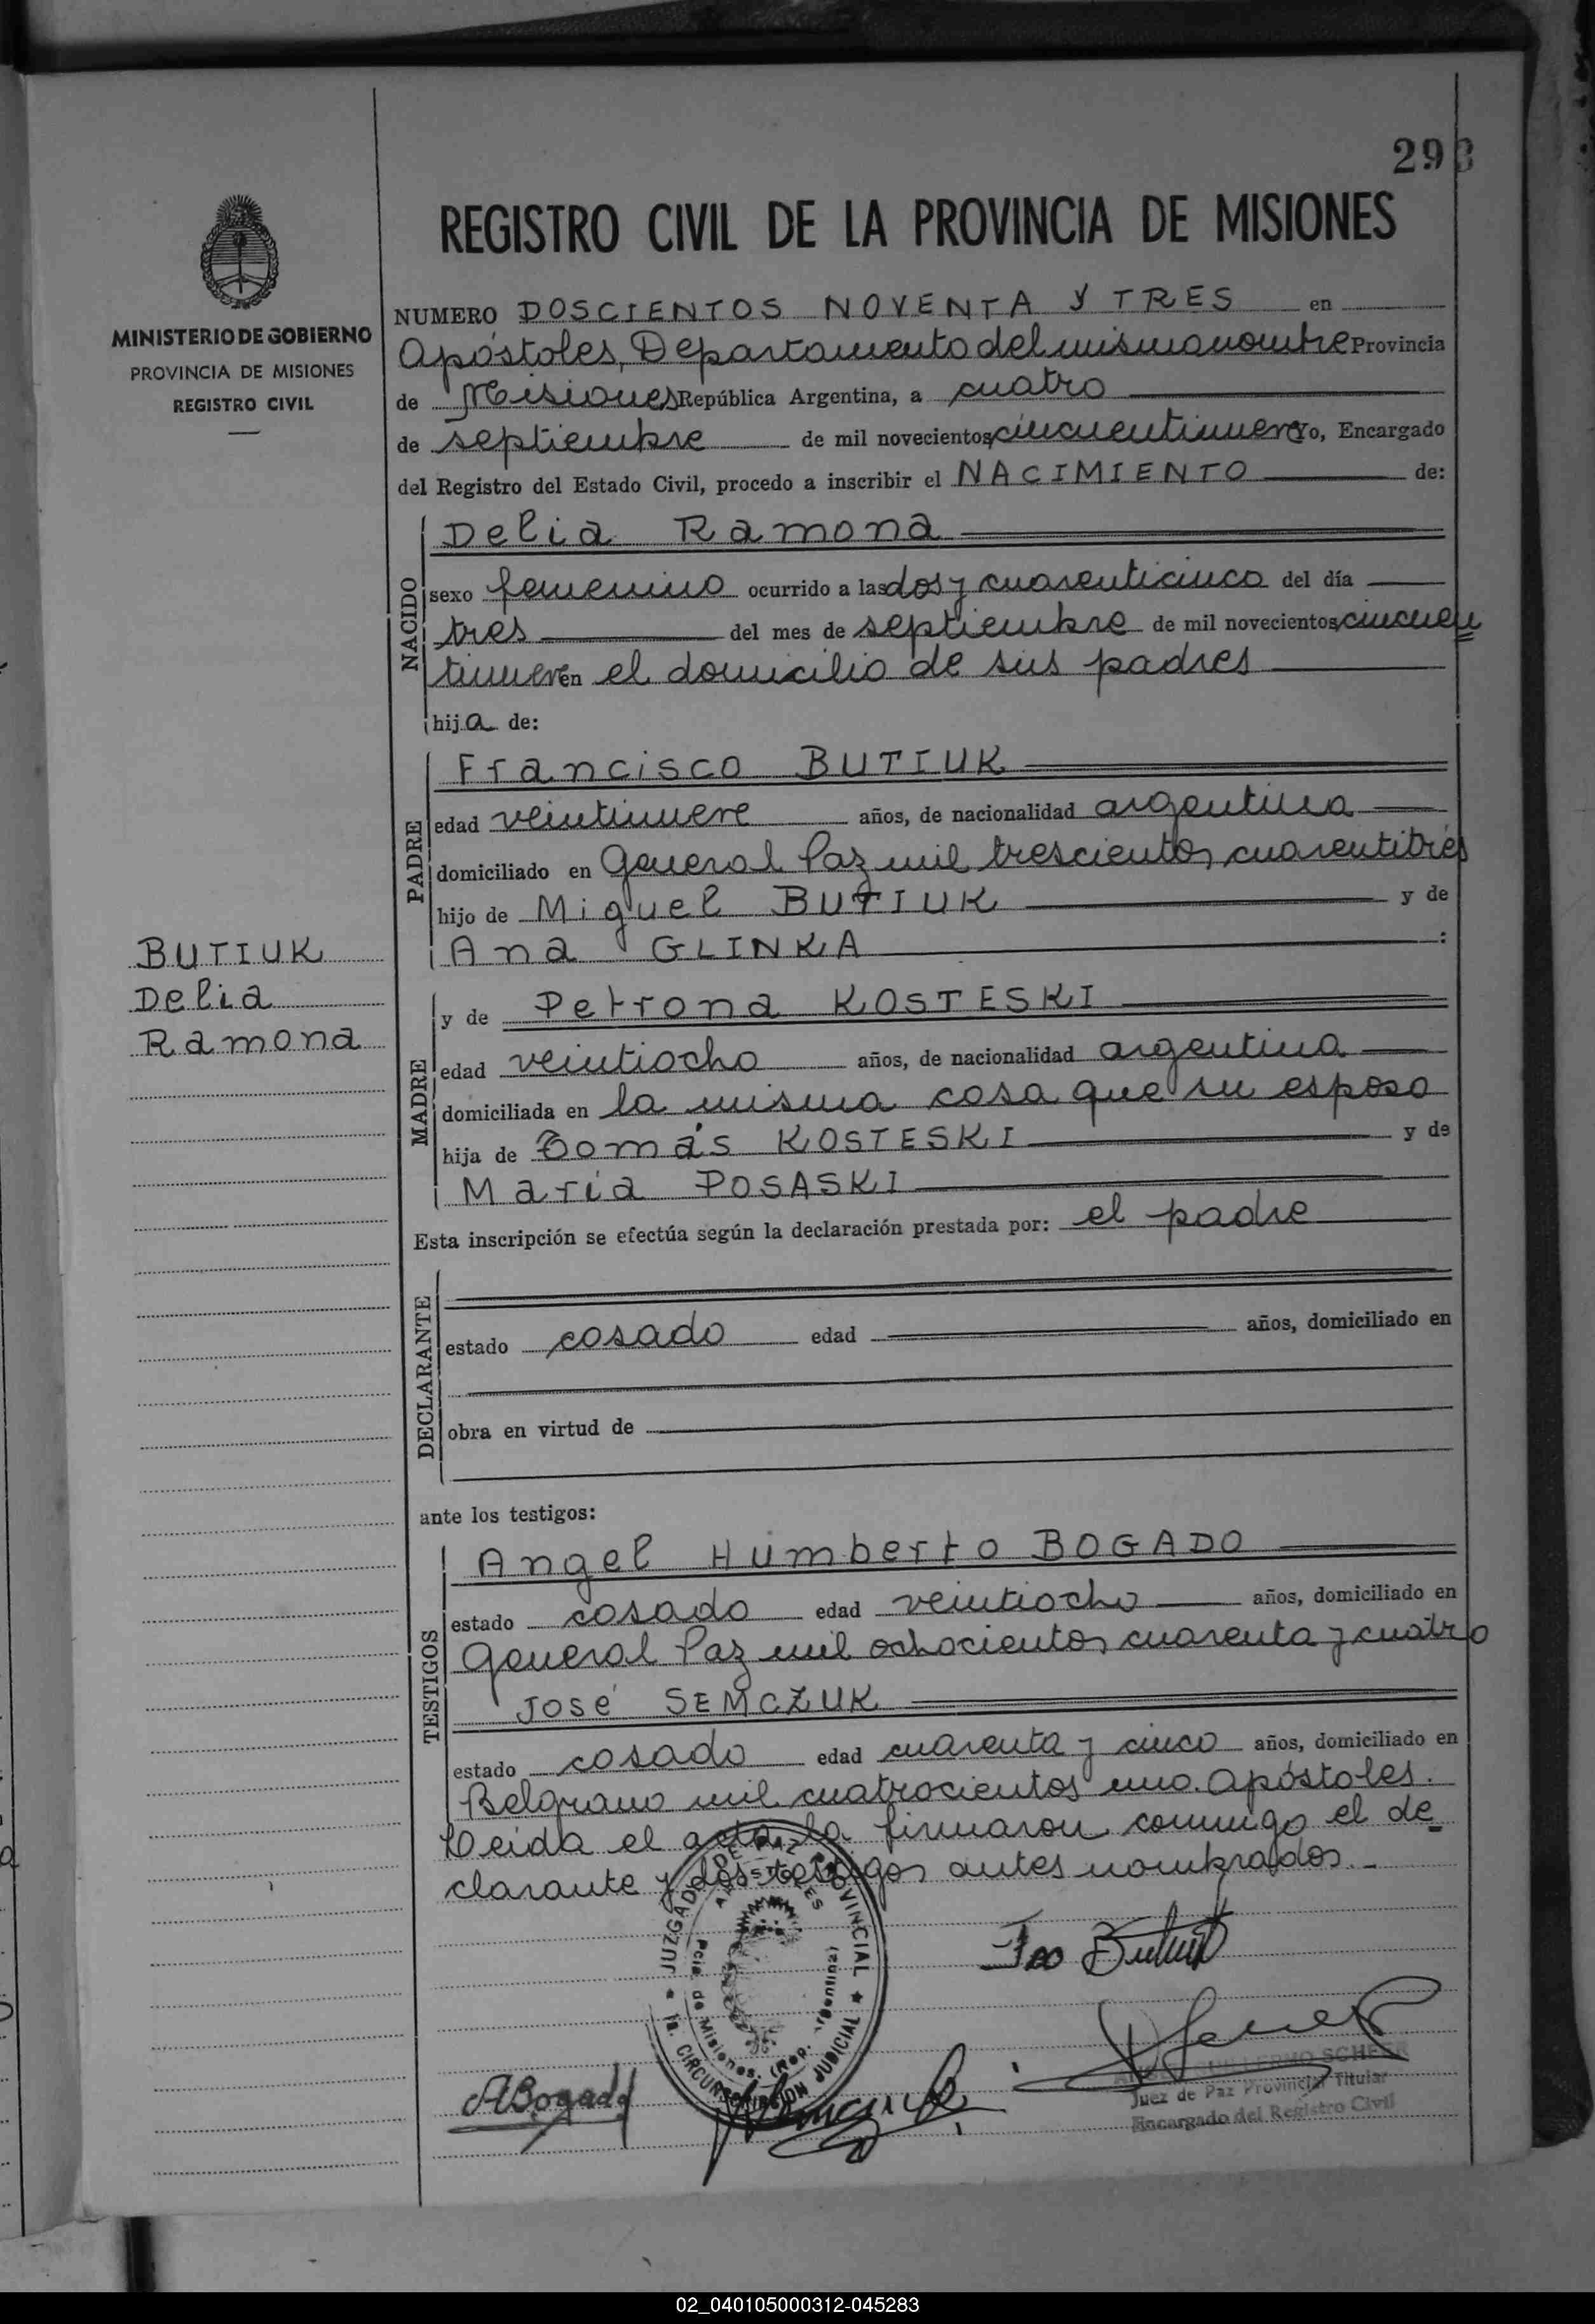 293
REGISTRO CIVIL DE LA PROVINCIA DE MISIONES
MINISTERIO DE GOBIERNO
PROVINCIA DE MISIONES
REGISTRO CIVIL
NUMERO DOSCIENTOS NOVENTA Y TRES en
Apóstoles, Departamento del mismo nombre Provincia
de Misiones República Argentina, a cuatro
de septiembre de mil novecientos cincuentinueve Yo, Encargado
del Registro del Estado Civil, procedo a inscribir el NACIMIENTO de:
NACIDO
Delia Ramona
sexo femenino ocurrido a las dos y cuarenticinco del día
tres del mes de septiembre de mil novecientos cincuen
tinueve en el domicilio de sus padres
hija de:
PADRE
Francisco BUTIUK
edad veintinueve años, de nacionalidad argentina
domiciliado en General Paz mil trescientos cuarentitrés
hijo de Miguel BUTIUK y de
Ana GLINKA :
BUTIUK
Delia
Ramona
MADRE
y de Petrona KOSTESKI
edad veintiocho años, de nacionalidad argentina
domiciliada en la misma casa que su esposo
hija de Tomás KOSTESKI y de
María POSASKI
Esta inscripción se efectúa según la declaración prestada por: el padre
DECLARANTE
estado casado edad años, domiciliado en
obra en virtud de
ante los testigos:
TESTIGOS
Angel Humberto BOGADO
estado casado edad veintiocho años, domiciliado en
General Paz mil ochocientos cuarenta y cuatro
José SEMCZUK
estado casado edad cuarenta y cinco años, domiciliado en
Belgrano mil cuatrocientos uno. Apóstoles.
Leída el acta, la firmaron conmigo el de
clarante y los testigos antes nombrados.-
JUZGADO DE PAZ PROVINCIAL
APOSTOLES
Pcia. de Misiones. (Rep. Argentina)
1a. CIRCUNSCRIPCION JUDICIAL
Fco Butiuk
ABogado
GUILLERMO SCHEER
Juez de Paz Provincial Titular
Encargado del Registro Civil
02_040105000312-045283